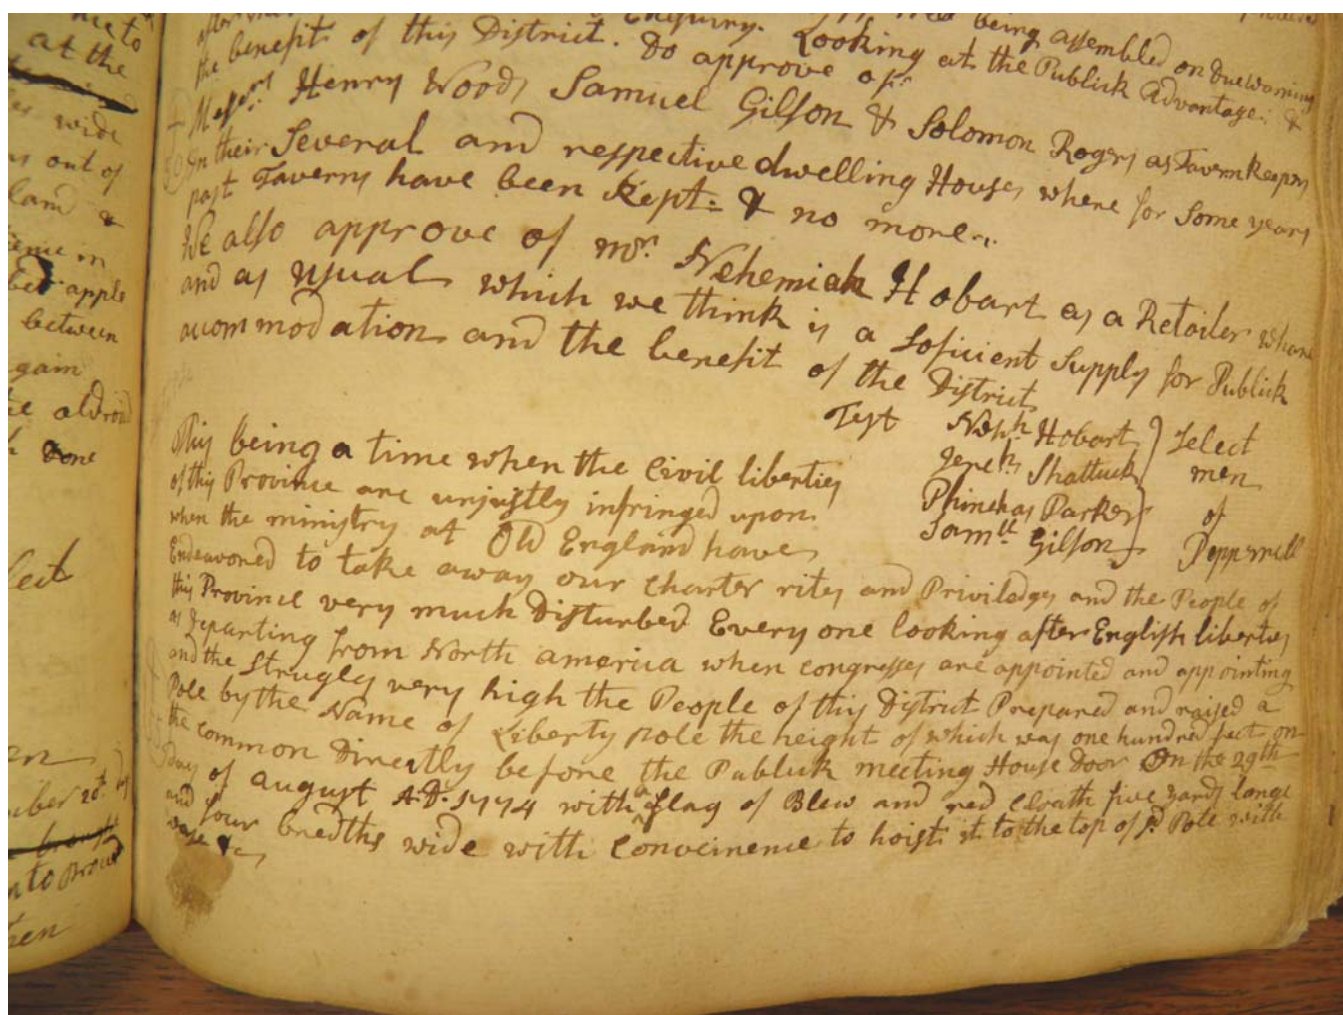 me to
at the
wide
out of
land &
between
gain
the benefit of this District. Do approve of Looking at the Publick Advantage: &
being assembled on Due Warning
Messrs. Henry Woods Samuel Gilson & Solomon Rogers as Tavern Keepers
In their Several and respective dwelling Houses where for Some years
past Taverns have been Kept: & no more..
We also approve of Mr. Nehemiah Hobart as a Retailer where
and as usual which we think is a Soficient Supply for Publick
accommodation and the benefit of the District
Test Nehh. Hobart Select
Jereh. Shattuck men
Phinehas Parker of
Samll Gilson Pepperrell
This being a time when the Civil liberties
of this Province are unjustly infringed upon
when the ministry at Old England have
Endeavored to take away our Charter rites and Priviledges and the People of
this Province very much Disturbed Every one looking after English liberties
as Departing from North america when congresses are appointed and appointing
and the Strugles very high the People of this District Prepared and raised a
Pole by the Name of Liberty pole the height of which was one hundred feet on
the common Directly before the Publick meeting House Door On the 29th
Day of August A.D. 1774 with a flag of Blew and red Cloath five yards long
and four bredths wide with Conveinence to hoist it to the top of sd. Pole with
&c